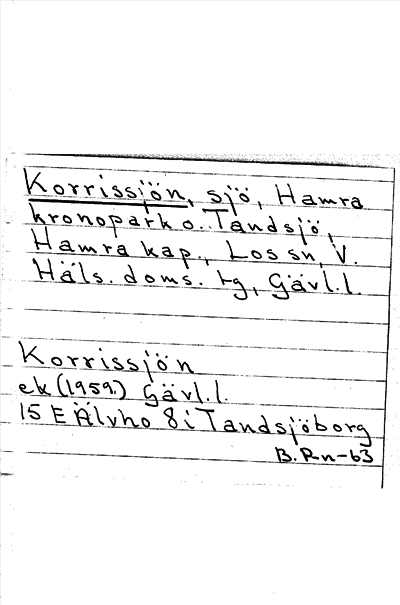 Korrissjön, sjö, Hamra
kronopark o. Tandsjö,
Hamra kap., Los sn, V.
Häls. doms. tg, Gävl.l.
Korrissjön
ek (1959.) Gävl.l.
15 E Älvho 8 i Tandsjöborg
B. Rn-63